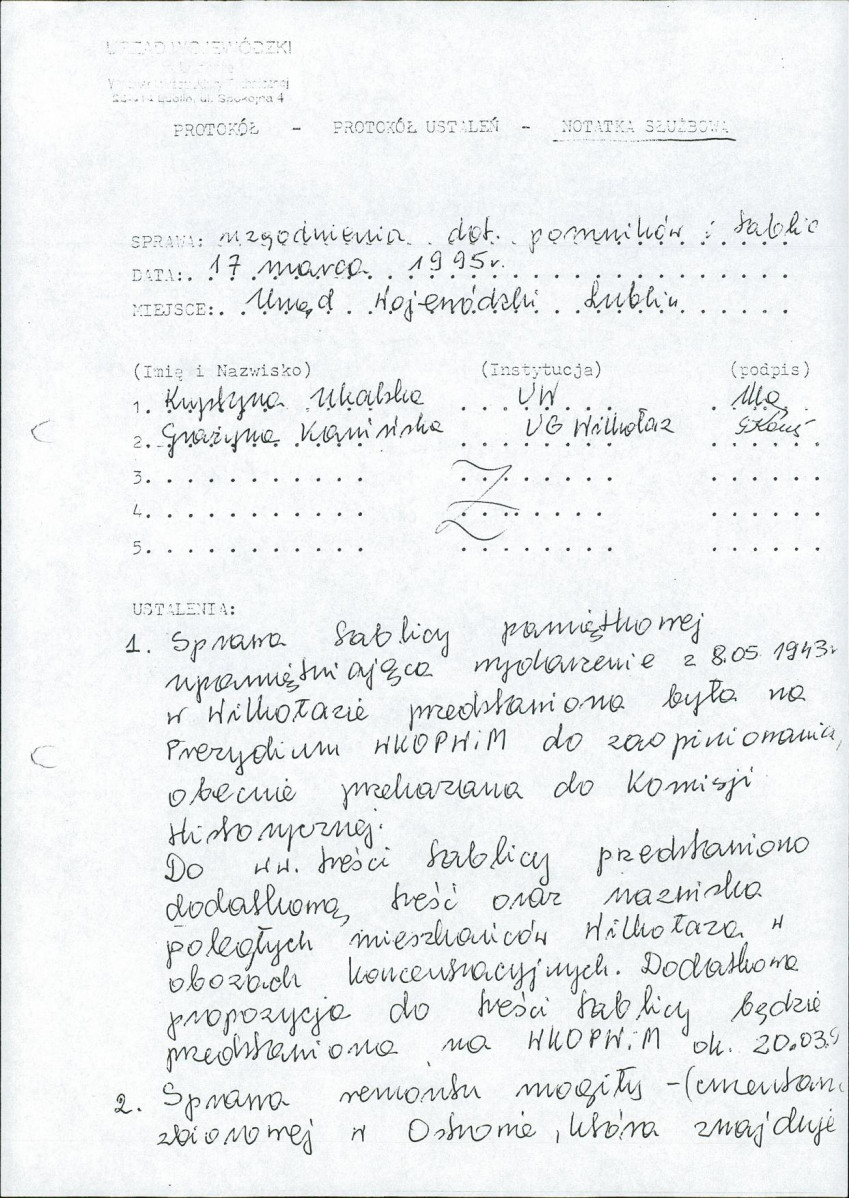 URZĄD WOJEWÓDZKI
Lublin, ul. Spokojna 4
PROTOKÓŁ - PROTOKÓŁ USTALEŃ - NOTATKA SŁUŻBOWA
SPRAWA: uzgodnienia dot. pomników i tablic
DATA: 17 marca 1995r.
MIEJSCE: Urząd Wojewódzki Lublin
(Imię i Nazwisko) (Instytucja) (podpis)
1. Krystyna Ukalska UW
2. Grażyna Kamińska UG Wilkołaz
3.
4.
5.
USTALENIA:
1. Sprawa tablicy pamiętkowej
upamiętniająca wydarzenie z 8.05.1943r
w Wilkołazie przedstawiona była na
Prezydium WKOPWiM do zaopiniowania,
obecnie przekazana do Komisji
Historycznej.
Do ww. treści tablicy przedstawiono
dodatkową treść oraz nazwiska
poległych mieszkańców Wilkołaza w
obozach koncentracyjnych. Dodatkowa
propozycja do treści tablicy będzie
przedstawiona na WKOPWiM ok. 20.03.9
2. Sprawa remontu mogiły -(cmentarn
zbiorowej w Ostrowie, która znajduje